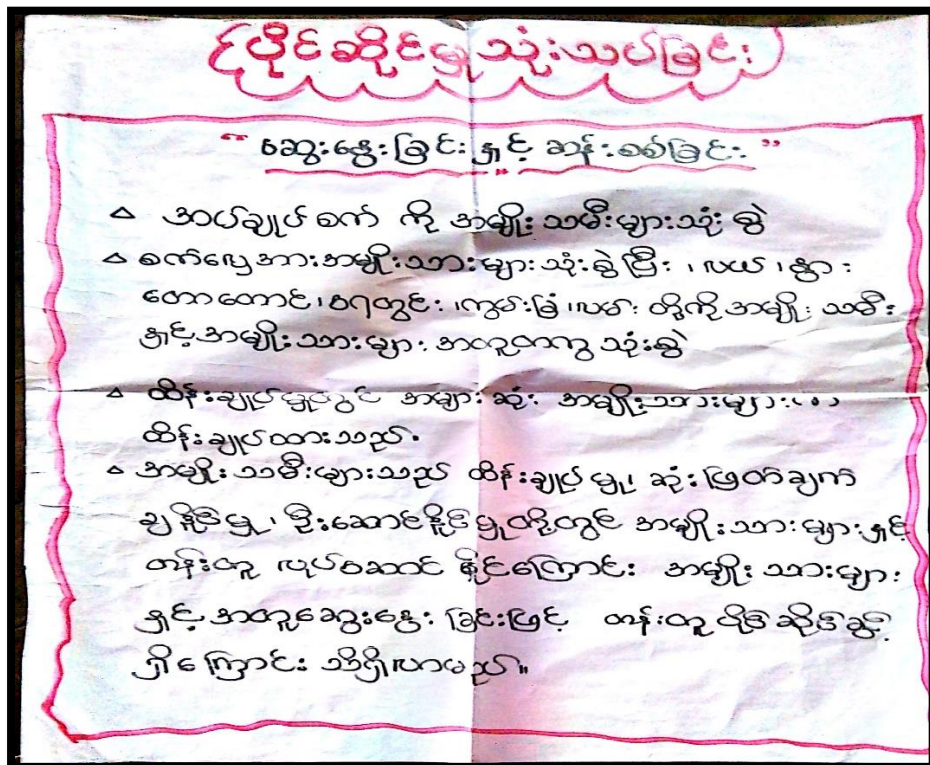 ပိုင်ဆိုင်မှုသုံးသပ်ခြင်း
"ဆွေးနွေးခြင်းနှင့် ဆန်းစစ်ခြင်း"
△ အပ်ချုပ်စက် ကို အမျိုးသမီးများသုံးစွဲ
△ စက်လှေအားအမျိုးသားများသုံးစွဲပြီး ၊ လယ် ၊ နွား
တောတောင်၊ ရေတွင်း ၊ကွမ်းခြံ ၊လမ်း တို့ကို အမျိုး သမီး
နှင့် အမျိုးသားများ အတူတကွ သုံးစွဲ
△ ထိန်းချုပ်မှုတွင် အများဆုံး အမျိုးသားများ
ထိန်းချုပ်ထားသည်။
△ အမျိုးသမီးများသည် ထိန်းချုပ်မှု၊ ဆုံးဖြတ်ချက်
ချနိုင်မှု ၊ ဦးဆောင်နိုင်မှုတို့တွင် အမျိုးသားများနှင့်
တန်းတူ လုပ်ဆောင် နိုင်ကြောင်း အမျိုးသားများ
နှင့် အတူဆွေးနွေး ခြင်းဖြင့် တန်းတူ ပိုင်ဆိုင်ခွင့်
ရှိကြောင်း သိရှိလာမည်။